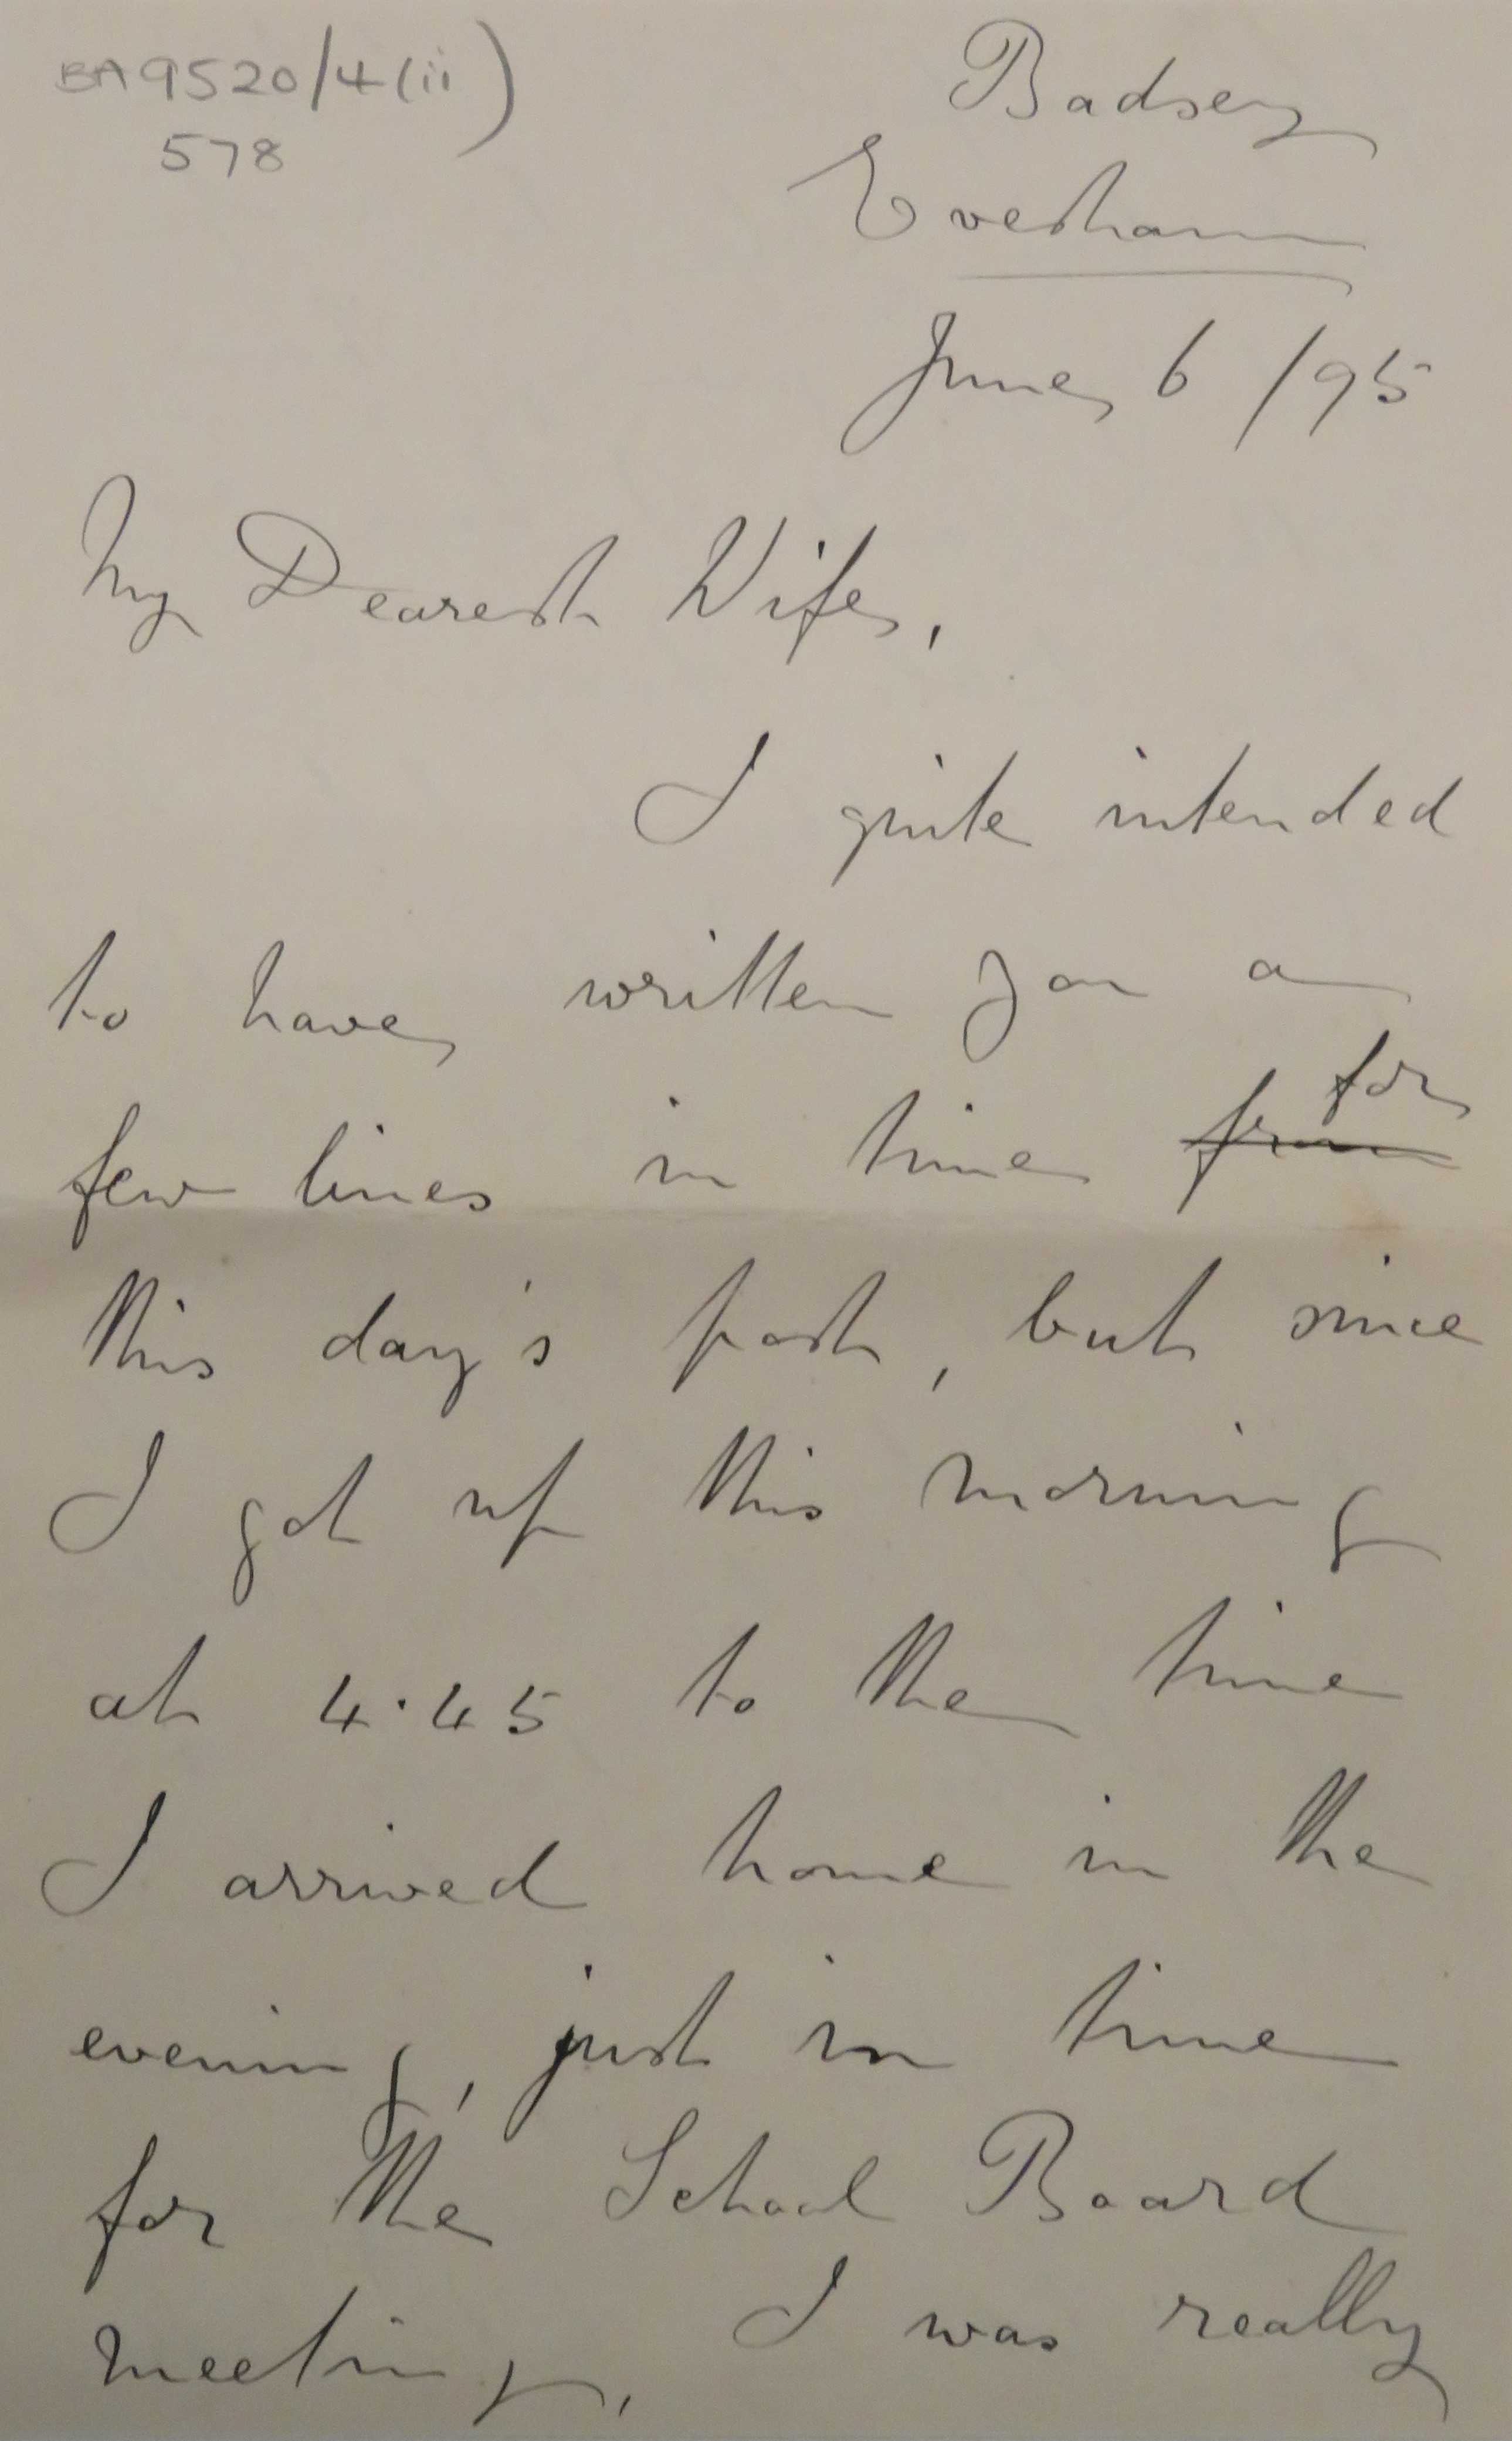 BA9520/4(ii)
578
Badsey
Evesham
June 6 /95
My Dearest Wife,
I quite intended
to have written you a
for
few lines in time from
this day's post, but since
I got up this morning
at 4.45 to the time
I arrived home in the
evening, just in time
for the School Board
meeting, I was really